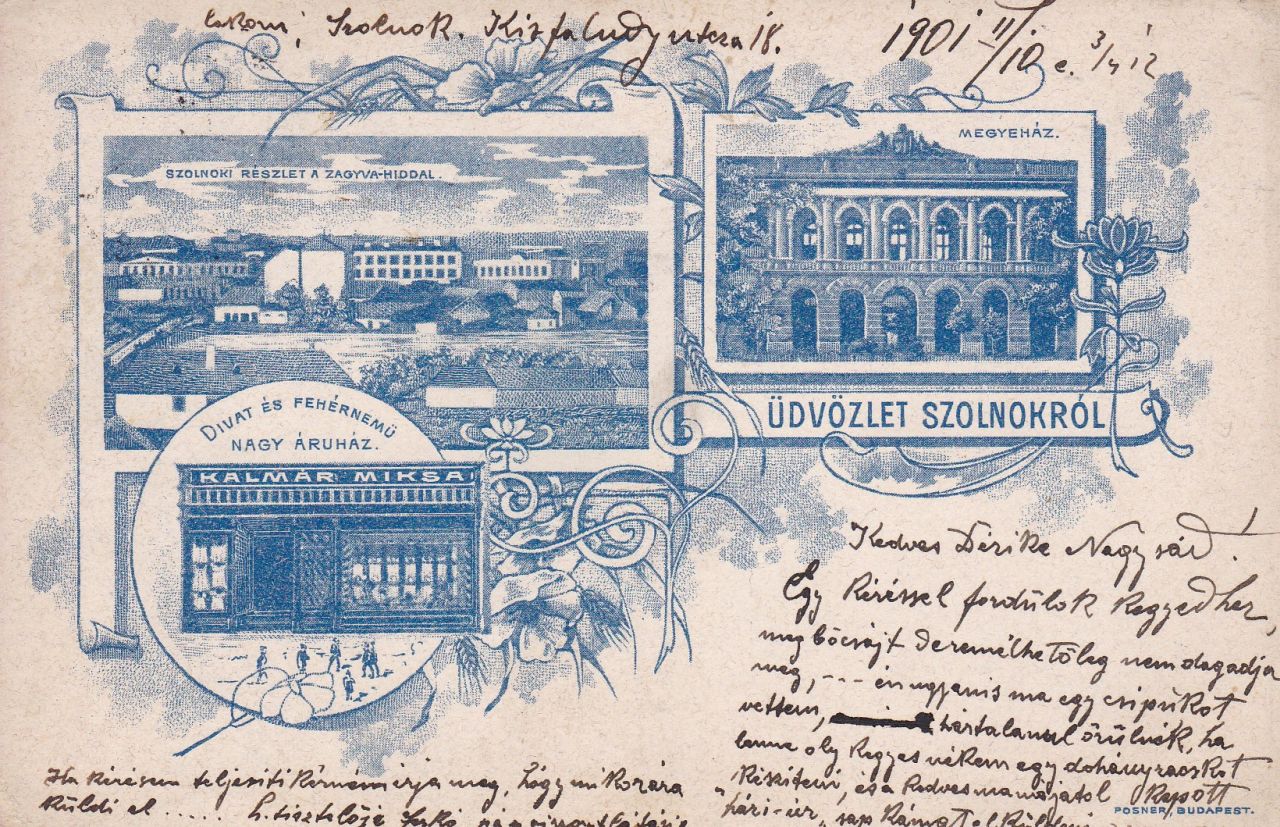 Szolnok. Kisfaludy utcza 18.
1901 II/10 e. 3/4 12
SZOLNOKI RÉSZLET A ZAGYVA-HIDDAL.
MEGYEHÁZ.
ÜDVÖZLET SZOLNOKRÓL
DIVAT ÉS FEHÉRNEMŰ
NAGY ÁRUHÁZ.
KALMÁR MIKSA
Kedves Nagysád!
Egy kéréssel fordúlok kegyedhez,
megbócsájt de remélhetőleg nem dagadja
meg, --- én ugyanis ma egy csipükot
vettem, hártalanul örülnék, ha
lenne oly kegyes nékem egy dohányzacskót
készíteni, és a kedves mamájatol kapott
"hári-
Ha kérésem teljesíti kérném írja meg, hogy mikorára
küldi el ..... h. tisztelője
POSNER, BUDAPEST.